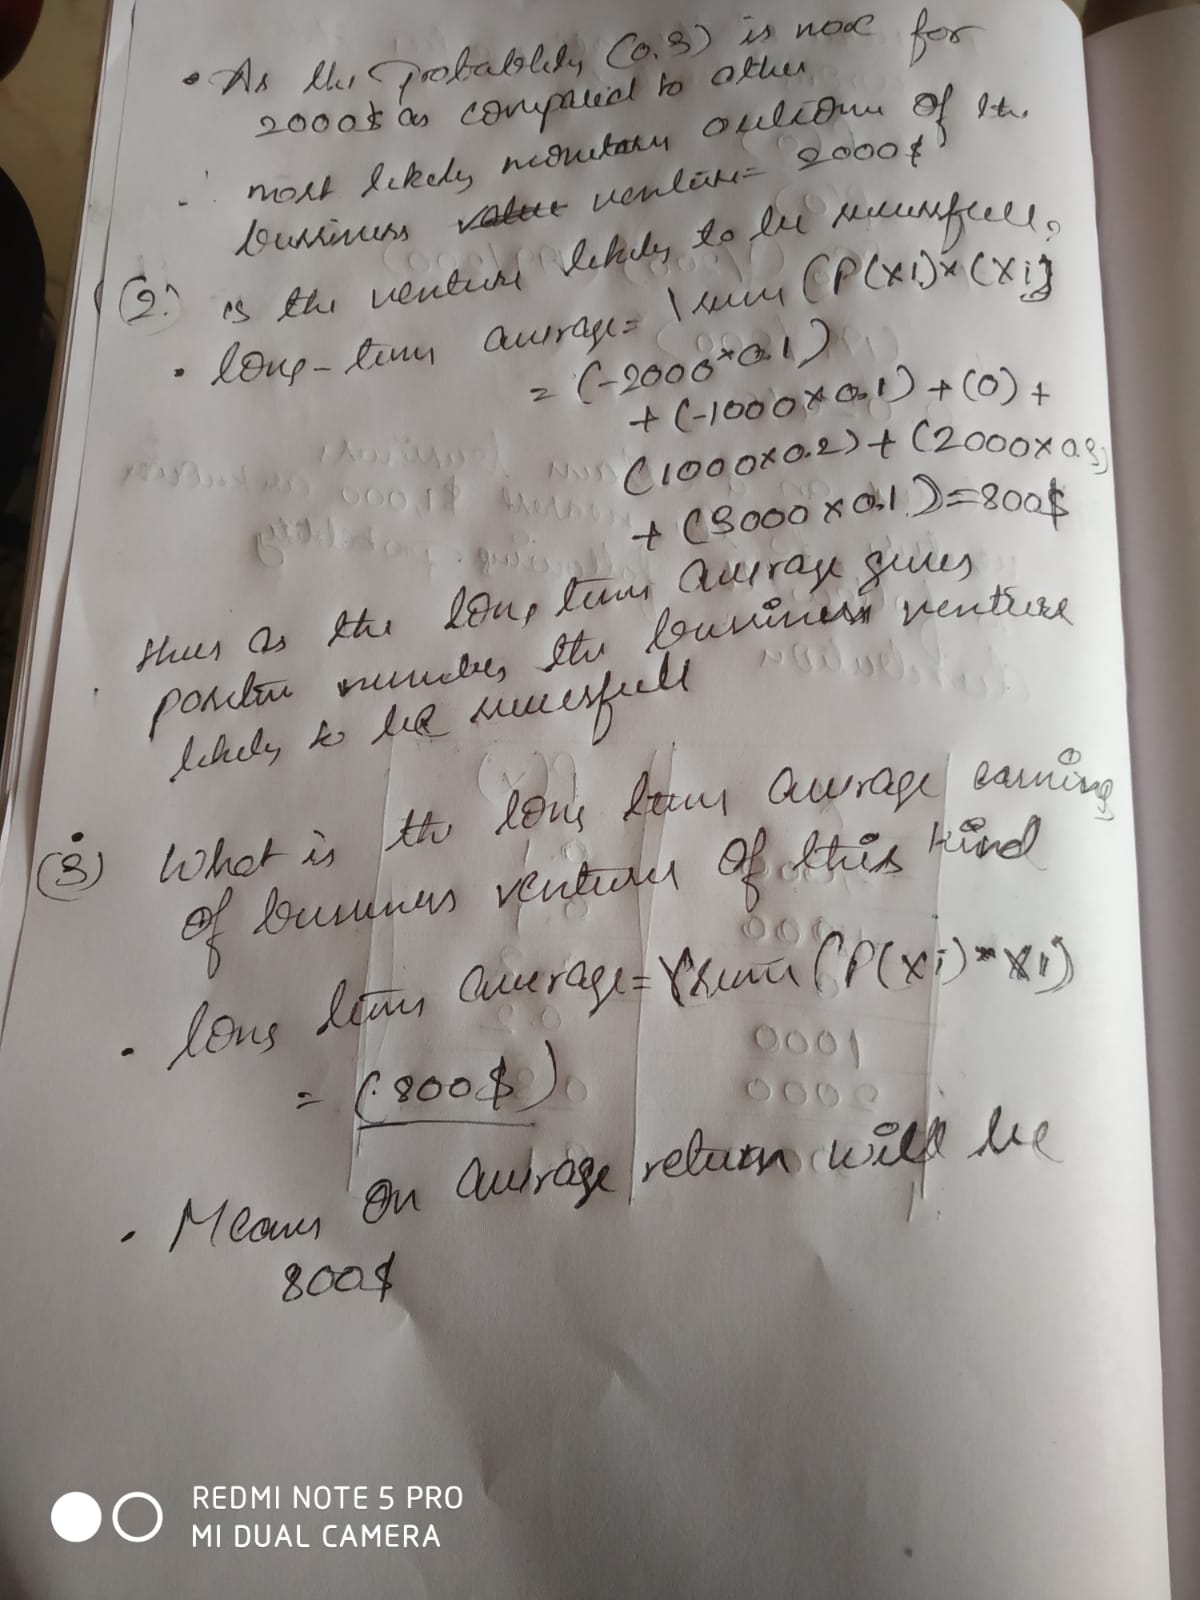 • As the probability (0.3) is max for
2000$ as compared to other
∴ most likely monetary outcome of the
bussiness value venture = 2000$
(2.) is the venture likely to be successfull?
• long-term average = sum (P(xi) × (xi)]
= (-2000 × 0.1)
+ (-1000 × 0.1) + (0) +
(1000×0.2) + (2000×0.3)
+ (3000 × 0.1) = 800$
thus as the long term average gives
positive number, the bussiness venture
likely to be successfull
(3) What is the long term average earning
of business ventures of this kind
• long term average = sum (P(xi) * xi)
= (800$)
• Means on average return will be
800$
REDMI NOTE 5 PRO
MI DUAL CAMERA